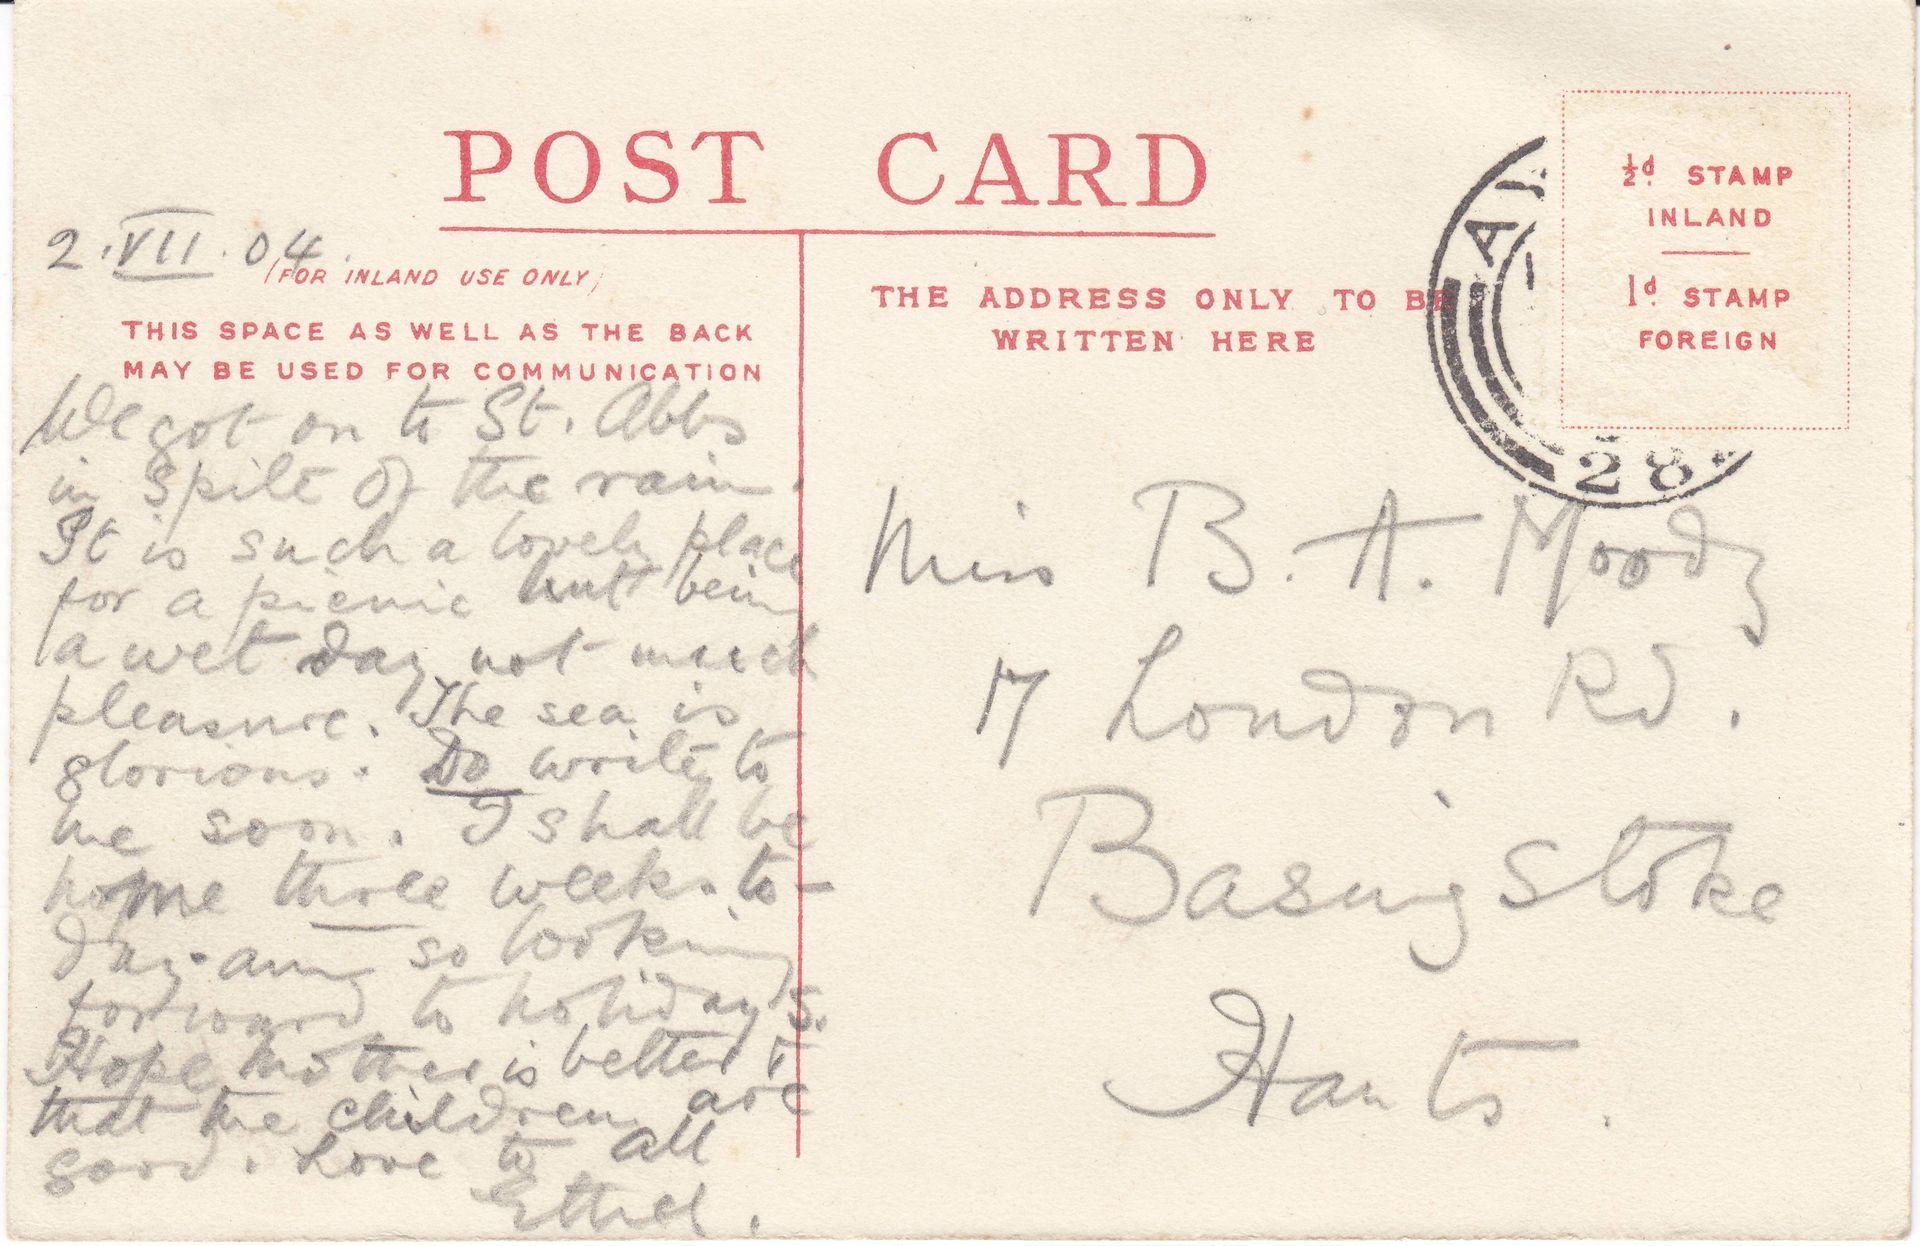 POST CARD
2.VII.04.
(FOR INLAND USE ONLY)
THIS SPACE AS WELL AS THE BACK
MAY BE USED FOR COMMUNICATION
We got on to St. Abbs
in spite of the rain.
It is such a lovely place
for a picnic but being
a wet day not much
pleasure. The sea is
glorious. Do write to
me soon. I shall be
home three weeks to-
day. am so looking
forward to holidays.
Hope Mother is better &
that the children are
good. Love to all
Ethel.
THE ADDRESS ONLY TO BE
WRITTEN HERE
½d. STAMP
INLAND
1d. STAMP
FOREIGN
28
Miss B. A. Moody
17 London Rd.
Basingstoke
Hants.